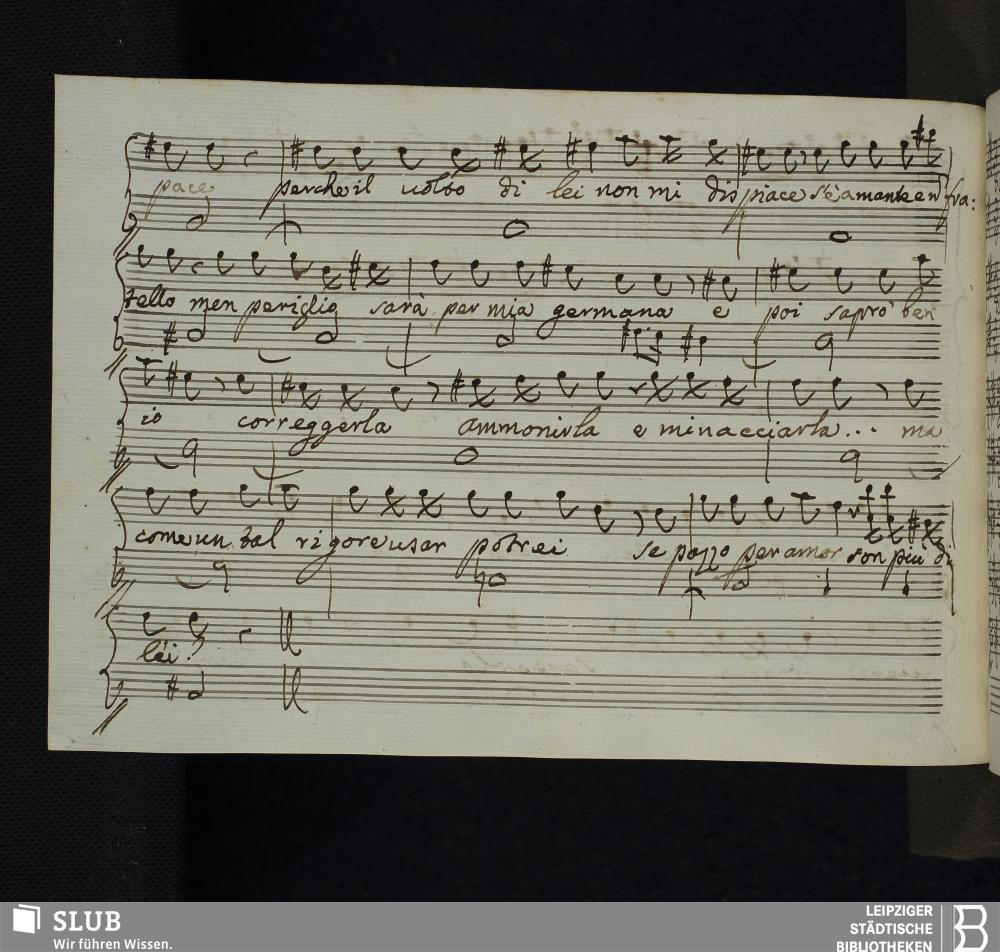 pace perche il volto di lei non mi dispiace s'è amante en fra:
tello men periglio sarà per mia germana e poi saprò ben
io correggerla ammonirla e minacciarla... ma
come un tal rigore usar potrei se pazzo per amor son piu di
lei?
SLUB
Wir führen Wissen.
LEIPZIGER
STÄDTISCHE
BIBLIOTHEKEN